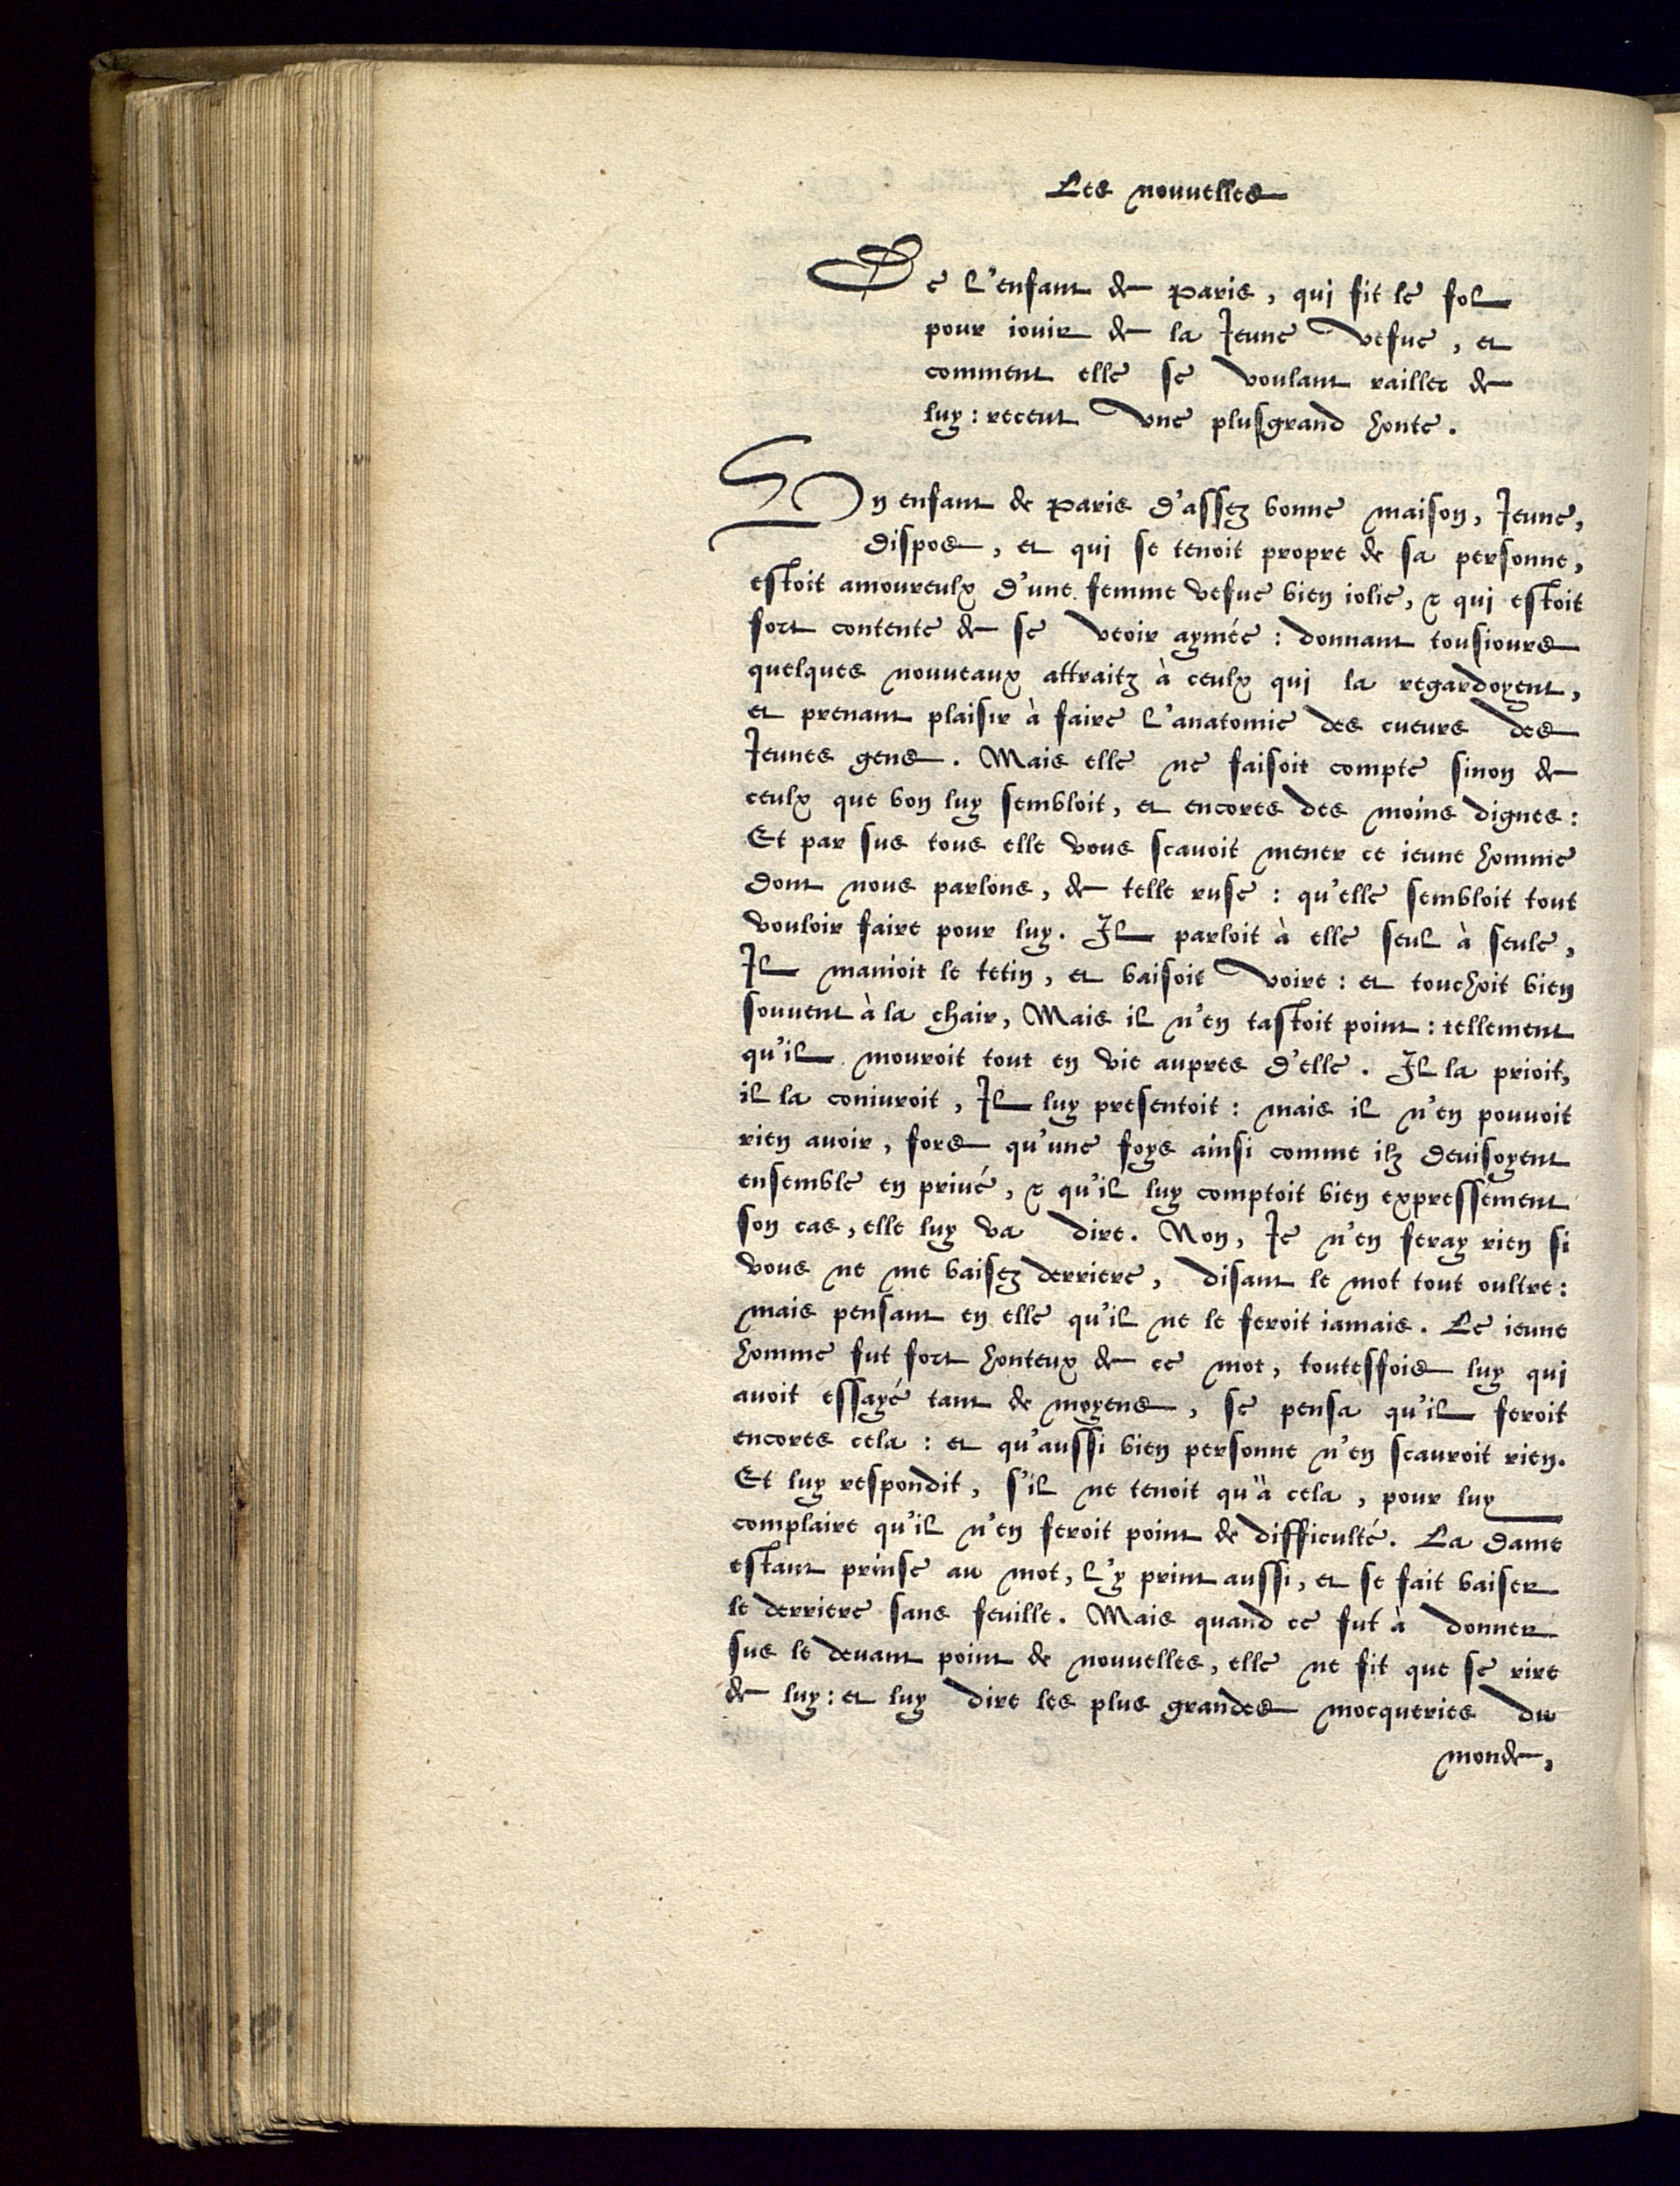 Les nouuelles
De l'enfant de Paris, qui fit le fol
pour iouir de la Ieune vefue, et
comment elle se voulant railler de
luy: receut vne plusgrand honte.
Vn enfant de Paris d'assez bonne maison, Ieune,
dispos, et qui se tenoit propre de sa personne,
estoit amoureulx d'une femme vefue bien iolie, & qui estoit
fort contente de se veoir aymée: donnant tousiours
quelques nouueaux attraitz à ceulx qui la regardoyent,
et prenant plaisir à faire l'anatomie des cueurs des
Ieunes gens. Mais elle ne faisoit compte sinon de
ceulx que bon luy sembloit, et encores des moins dignes:
Et par sus tous elle vous scauoit mener ce ieune homme
dont nous parlons, de telle ruse: qu'elle sembloit tout
vouloir faire pour luy. Il parloit à elle seul à seule,
Il manioit le tetin, et baisoit voire: et touchoit bien
souuent à la chair, Mais il n'en tastoit point: tellement
qu'il mouroit tout en vie aupres d'elle. Il la prioit,
il la coniuroit, Il luy presentoit: mais il n'en pouuoit
rien auoir, fors qu'une foys ainsi comme ilz deuisoyent
ensemble en priué, & qu'il luy comptoit bien expressement
son cas, elle luy va dire. Non, Ie n'en feray rien si
vous ne me baisez derriere, disant le mot tout oultre:
mais pensant en elle qu'il ne le feroit iamais. Le ieune
homme fut fort honteux de ce mot, toutesfois luy qui
auoit essayé tant de moyens, se pensa qu'il feroit
encores cela: et qu'aussi bien personne n'en scauroit rien.
Et luy respondit, s'il ne tenoit qu'à cela, pour luy
complaire qu'il n'en feroit point de difficulté. La dame
estant prinse au mot, l'y print aussi, et se fait baiser
le derriere sans feuille. Mais quand ce fut à donner
sus le deuant point de nouuelles, elle ne fit que se rire
de luy: et luy dire les plus grandes mocqueries du
monde,